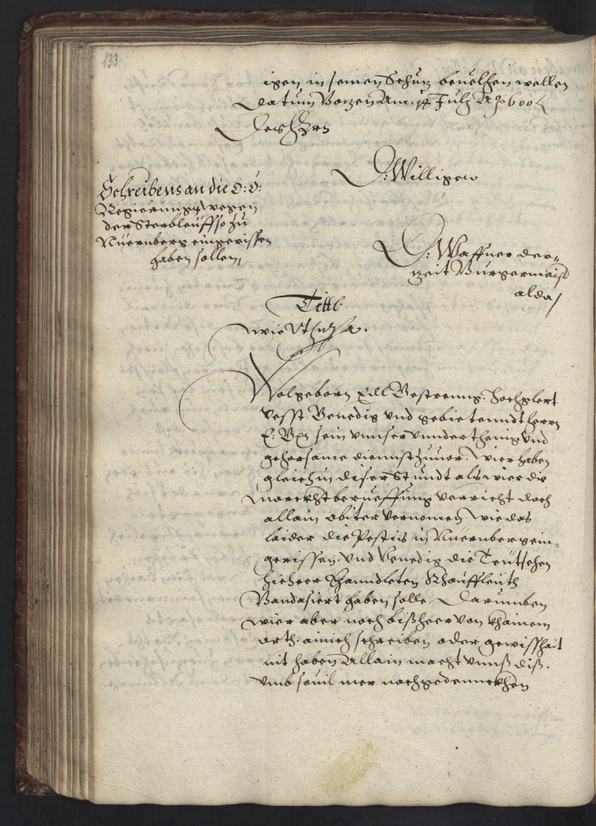 133
igen in seinen Schuz beuelhen wellen
Datum Bozen Am: 14 Julj Aõ 600
Des Hrn
D: Willigen
Schreibens an die O: Ö:
Regierung wegen
der Sterbleüff so zu
Nuernberg eingerissen
haben sollen,
D: Waffner der=
zeit Burgermaist
alda/
Titl
wie
Wolgeborn Edl Gestrenng: Hochgelert
Vesst Genedig vnd gebietenndt Herrn
E: Gn sein vnnser vnnderthenig vnd
gehorsame diennst zuuor, wier haben
gleich in diser Stundt als wier die
Marckhtberueffung verricht doch
allain obiter vernomen, wie das
laider die Pestis in Nuernberg ein=
gerissen. vnd Venedig die Teutschen
hieheer hanndleten Khauffleüth
Bandasiert haben solle. Darumben
wier aber noch bißheer von khainem
orth. ainich schreiben oder gewißhait
nit haben Allain macht vnnß diß.
vmb souil mer nachgedennckhen